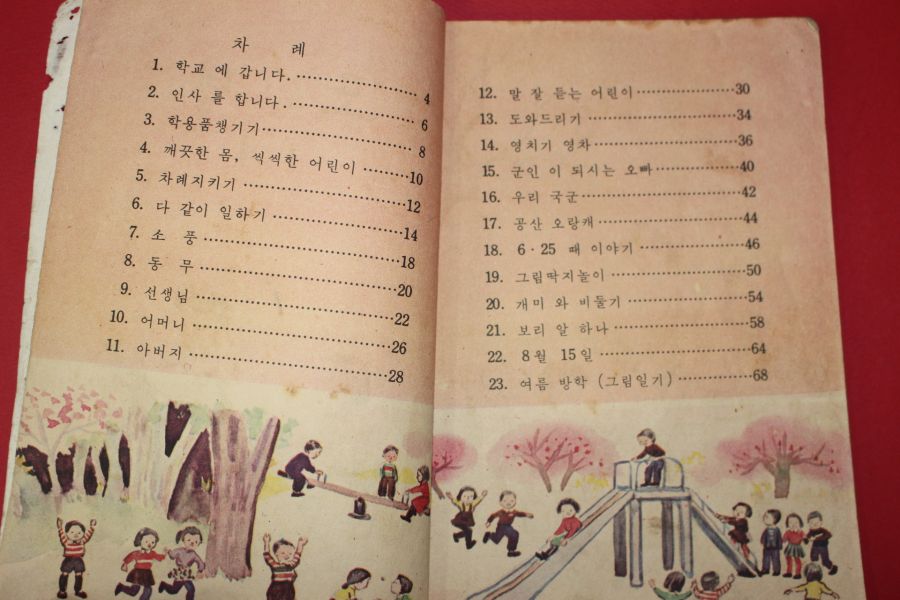 차 례
1. 학교 에 갑니다. 4
2. 인사 를 합니다. 6
3. 학용품챙기기 8
4. 깨끗한 몸, 씩씩한 어린이 10
5. 차례지키기 12
6. 다 같이 일하기 14
7. 소 풍 18
8. 동 무 20
9. 선생님 22
10. 어머니 26
11. 아버지 28
12. 말 잘 듣는 어린이 30
13. 도와드리기 34
14. 영치기 영차 36
15. 군인 이 되시는 오빠 40
16. 우리 국군 42
17. 공산 오랑캐 44
18. 6·25 때 이야기 46
19. 그림딱지놀이 50
20. 개미 와 비둘기 54
21. 보리 알 하나 58
22. 8월 15일 64
23. 여름 방학 (그림일기) 68